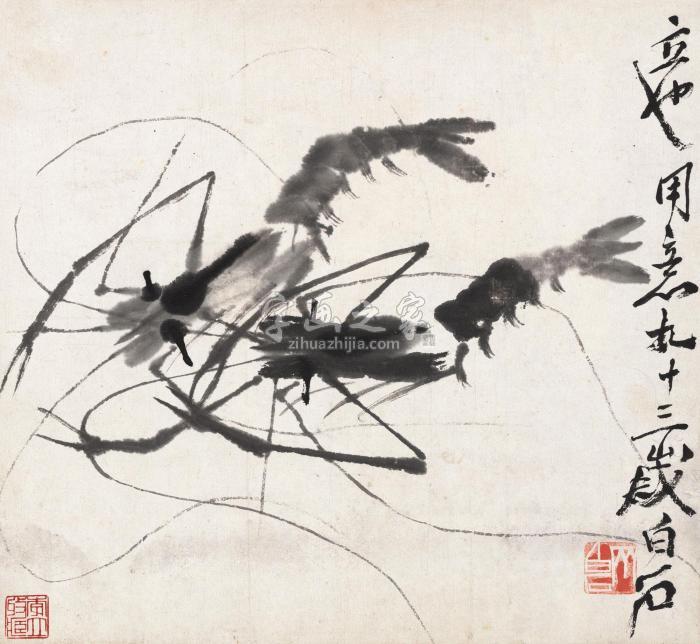 立也用意九十三岁白石
字画之家
zihuazhijia.com